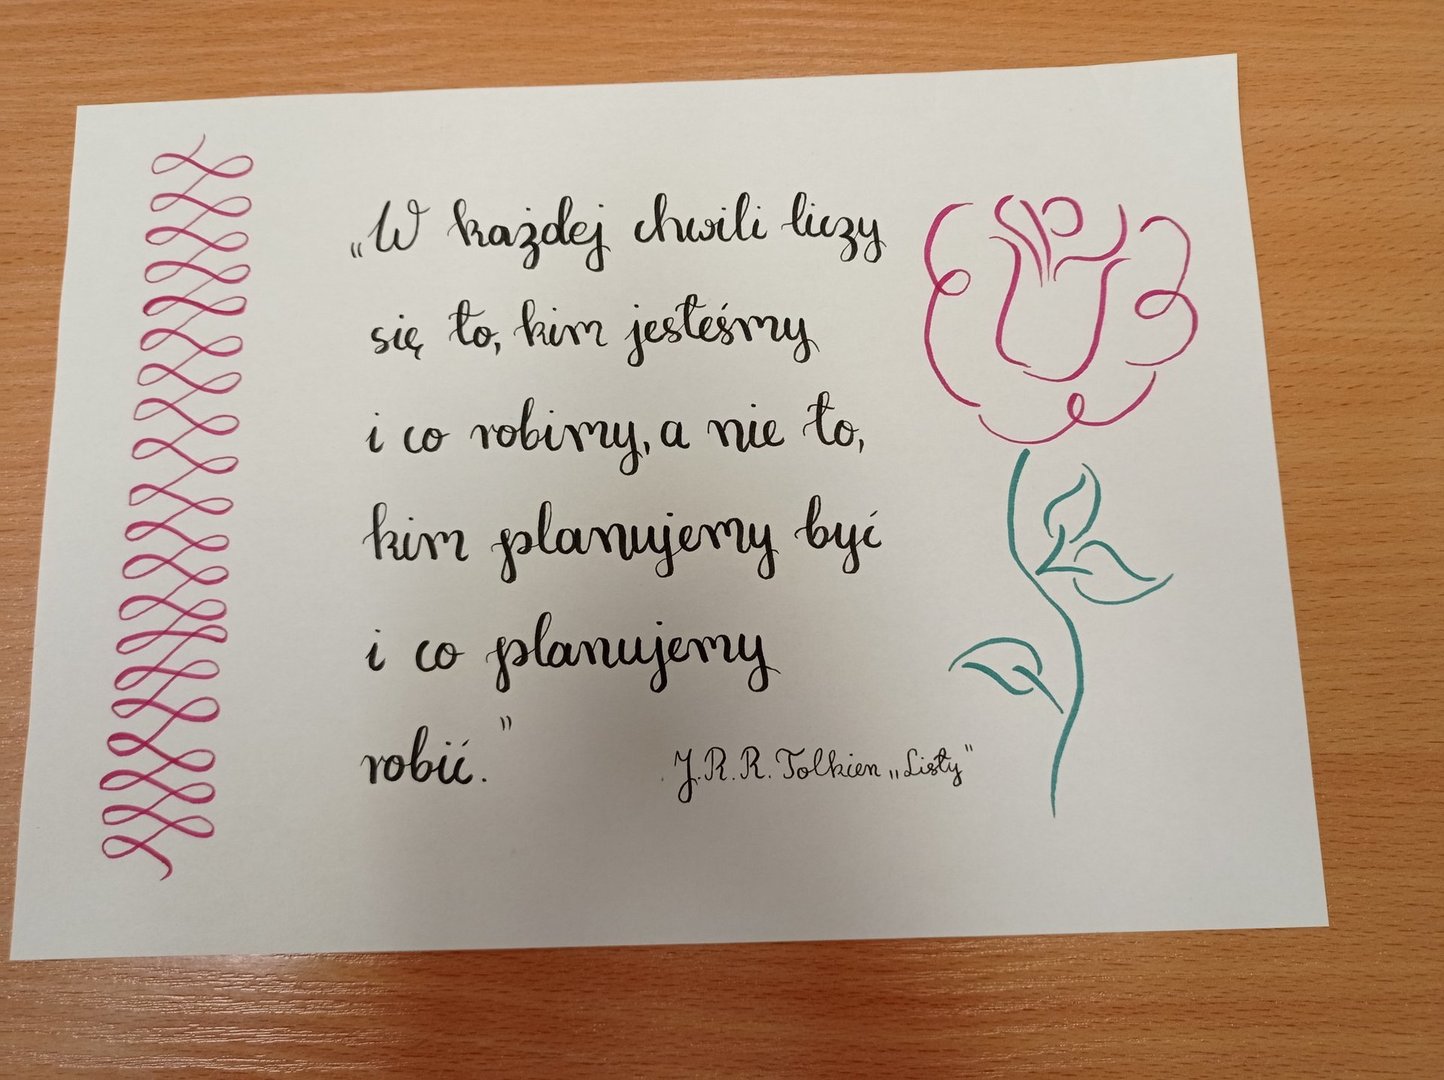 „W każdej chwili liczy
się to, kim jesteśmy
i co robimy, a nie to,
kim planujemy być
i co planujemy
robić.”
J.R.R. Tolkien „Listy”